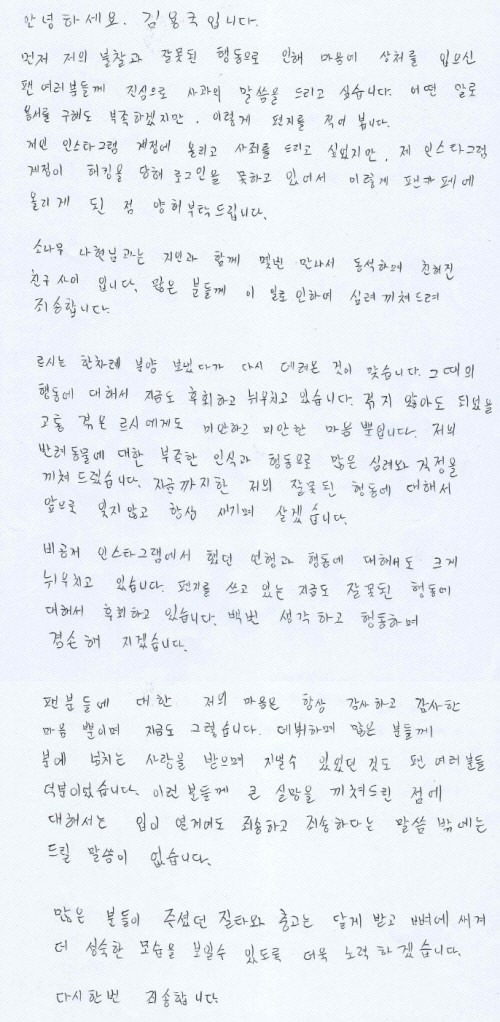 안녕하세요. 김용국입니다.
먼저 저의 불찰과 잘못된 행동으로 인해 마음에 상처를 입으신
팬 여러분들께 진심으로 사과의 말씀을 드리고 싶습니다. 어떤 말로
용서를 구해도 부족하겠지만, 이렇게 편지를 적어 봅니다.
개인 인스타그램 계정에 올리고 사죄를 드리고 싶었지만, 제 인스타그램
계정이 해킹을 당해 로그인을 못하고 있어서 이렇게 팬카페에
올리게 된 점 양해부탁드립니다.
소나무 나현님과는 지인과 함께 몇번 만나서 동석하며 친해진
친구 사이 입니다. 많은 분들께 이 일로 인하여 심려 끼쳐드려
죄송합니다.
르시는 한차례 분양 보냈다가 다시 데려온 것이 맞습니다. 그 때의
행동에 대해서 지금도 후회하고 뉘우치고 있습니다. 겪지 않아도 되었을
고통을 겪은 르시에게도 미안하고 미안한 마음 뿐입니다. 저의
반려동물에 대한 부족한 인식과 행동으로 많은 심려와 걱정을
끼쳐 드렸습니다. 지금까지한 저의 잘못된 행동에 대해서
앞으로 잊지않고 항상 새기며 살겠습니다.
비공개 인스타그램에서 했던 언행과 행동에 대해서도 크게
뉘우치고 있습니다. 편지를 쓰고 있는 지금도 잘못된 행동에
대해서 후회하고 있습니다. 백번 생각하고 행동하며
겸손해 지겠습니다.
팬분들에 대한 저의 마음은 항상 감사하고 감사한
마음 뿐이며 지금도 그렇습니다. 데뷔하며 많은 분들께
분에 넘치는 사랑을 받으며 지낼수 있었던 것도 팬 여러분들
덕분이었습니다. 이런 분들께 큰 실망을 끼쳐드린 점에
대해서는 입이 열개여도 죄송하고 죄송하다는 말씀 밖에는
드릴 말씀이 없습니다.
많은 분들이 주셨던 질타와 충고는 달게 받고 뼈에 새겨
더 성숙한 모습을 보일수 있도록 더욱 노력하겠습니다.
다시한번 죄송합니다.